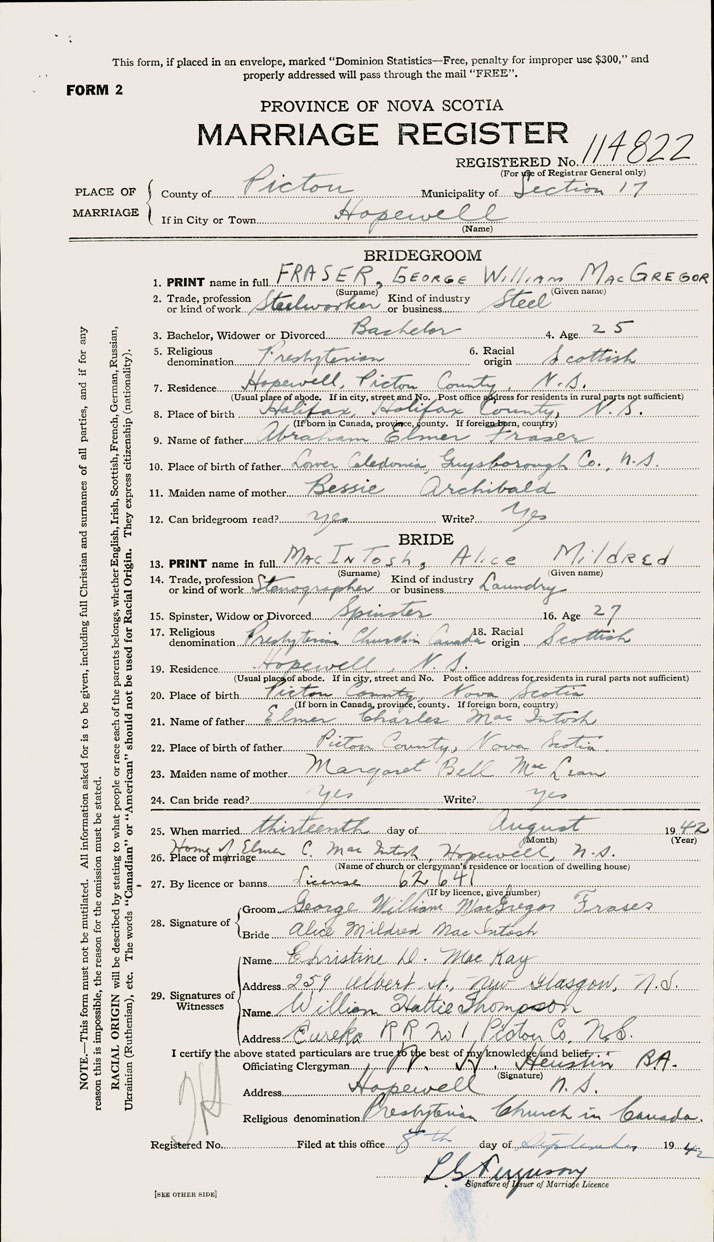 This form, if placed in an envelope, marked "Dominion Statistics—Free, penalty for improper use $300," and
properly addressed will pass through the mail "FREE".
FORM 2
PROVINCE OF NOVA SCOTIA
MARRIAGE REGISTER
REGISTERED No. 114822
(For use of Registrar General only)
PLACE OF MARRIAGE
County of Picton Municipality of Section 17
If in City or Town Hopewell
(Name)
BRIDEGROOM
1. PRINT name in full FRASER, GEORGE WILLIAM MACGREGOR
(Surname) (Given name)
2. Trade, profession or kind of work Steelworker Kind of industry or business Steel
3. Bachelor, Widower or Divorced Bachelor 4. Age 25
5. Religious denomination Presbyterian 6. Racial origin Scottish
7. Residence Hopewell, Picton County, N.S.
(Usual place of abode. If in city, street and No. Post office address for residents in rural parts not sufficient)
8. Place of birth Halifax, Halifax County, N.S.
(If born in Canada, province, county. If foreign born, country)
9. Name of father Abraham Elmer Fraser
10. Place of birth of father Lower Caledonia, Guysborough Co., N.S.
11. Maiden name of mother Bessie Archibald
12. Can bridegroom read? yes Write? Yes
BRIDE
13. PRINT name in full MacIntosh, Alice Mildred
(Surname) (Given name)
14. Trade, profession or kind of work Stenographer Kind of industry or business Laundry
15. Spinster, Widow or Divorced Spinster 16. Age 27
17. Religious denomination Presbyterian Church in Canada 18. Racial origin Scottish
19. Residence Hopewell, N.S.
(Usual place of abode. If in city, street and No. Post office address for residents in rural parts not sufficient)
20. Place of birth Picton County, Nova Scotia
(If born in Canada, province, county. If foreign born, country)
21. Name of father Elmer Charles MacIntosh
22. Place of birth of father Picton County, Nova Scotia.
23. Maiden name of mother Margaret Bell MacLean
24. Can bride read? yes Write? yes
25. When married thirteenth day of August 1942
(Month) (Year)
26. Place of marriage Home of Elmer C. MacIntosh, Hopewell, N.S.
(Name of church or clergyman's residence or location of dwelling house)
27. By licence or banns License 62641
(If by licence, give number)
28. Signature of
Groom George William MacGregor Fraser
Bride Alice Mildred MacIntosh
29. Signatures of Witnesses
Name Christine D. MacKay
Address 259 Albert St., New Glasgow, N.S.
Name William Hattie Thompson
Address Eureka RR No 1 Picton Co. N.S.
I certify the above stated particulars are true to the best of my knowledge and belief.
Officiating Clergyman BA.
(Signature)
Address Hopewell N.S.
Religious denomination Presbyterian Church in Canada.
Registered No. Filed at this office 8th day of September 1942
Ferguson
Signature of Issuer of Marriage Licence
[SEE OTHER SIDE]
NOTE.—This form must not be mutilated. All information asked for is to be given, including full Christian and surnames of all parties, and if for any
reason this is impossible, the reason for the omission must be stated.
RACIAL ORIGIN will be described by stating to what people or race each of the parents belongs, whether English, Irish, Scottish, French, German, Russian,
Ukrainian (Ruthenian), etc. The words "Canadian" or "American" should not be used for Racial Origin. They express citizenship (nationality).